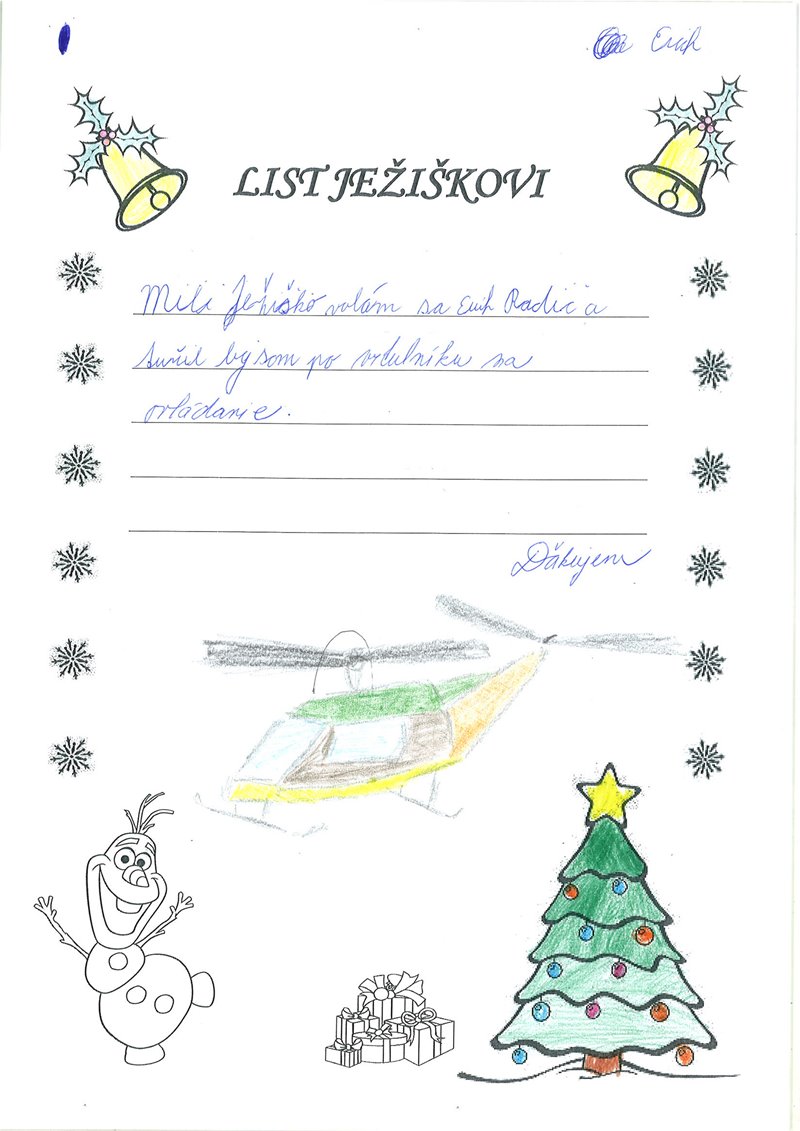 Erich
LIST JEŽIŠKOVI
Mili Ježiško volám sa Erich Radič a
túžil by som po vrtulníku na
ovládanie.
Ďakujem